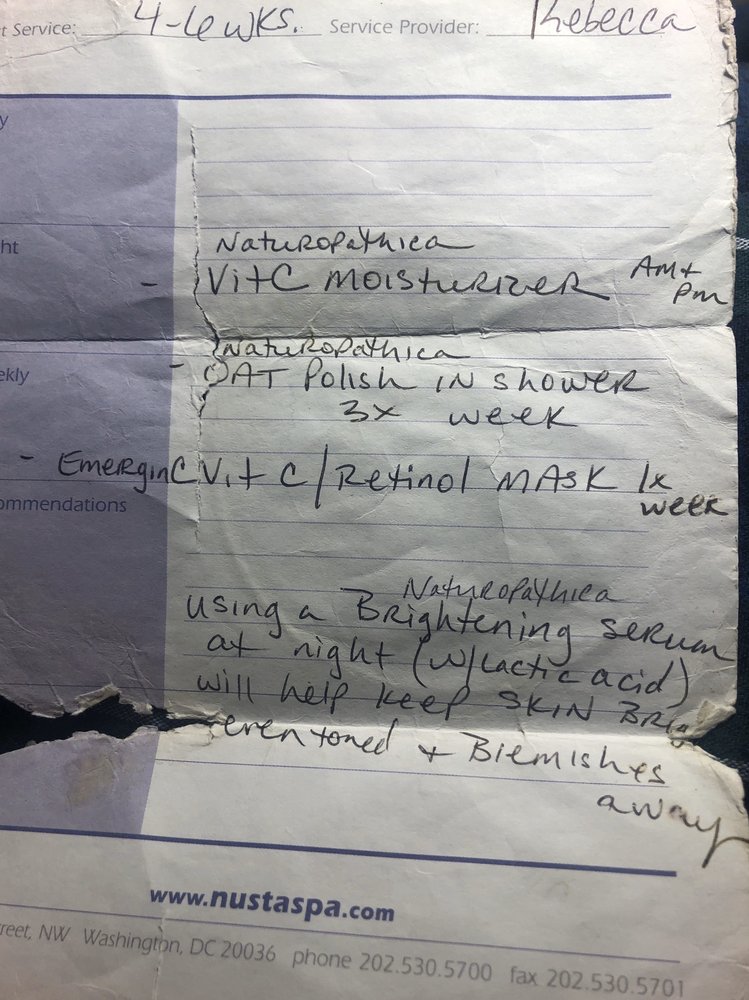 t Service: 4-6 wks. Service Provider: Rebecca
y
ht
Naturopathica
- Vit C Moisturizer AM +
PM
Naturopathica
ekly
- OAT Polish in shower
3x week
- EmerginC Vit C/Retinol MASK 1x
week
ommendations
Naturopathica
using a Brightening serum
at night (w/lactic acid)
will help keep SKIN Brig
even toned + Blemishes
away
www.nustaspa.com
reet, NW Washington, DC 20036 phone 202.530.5700 fax 202.530.5701